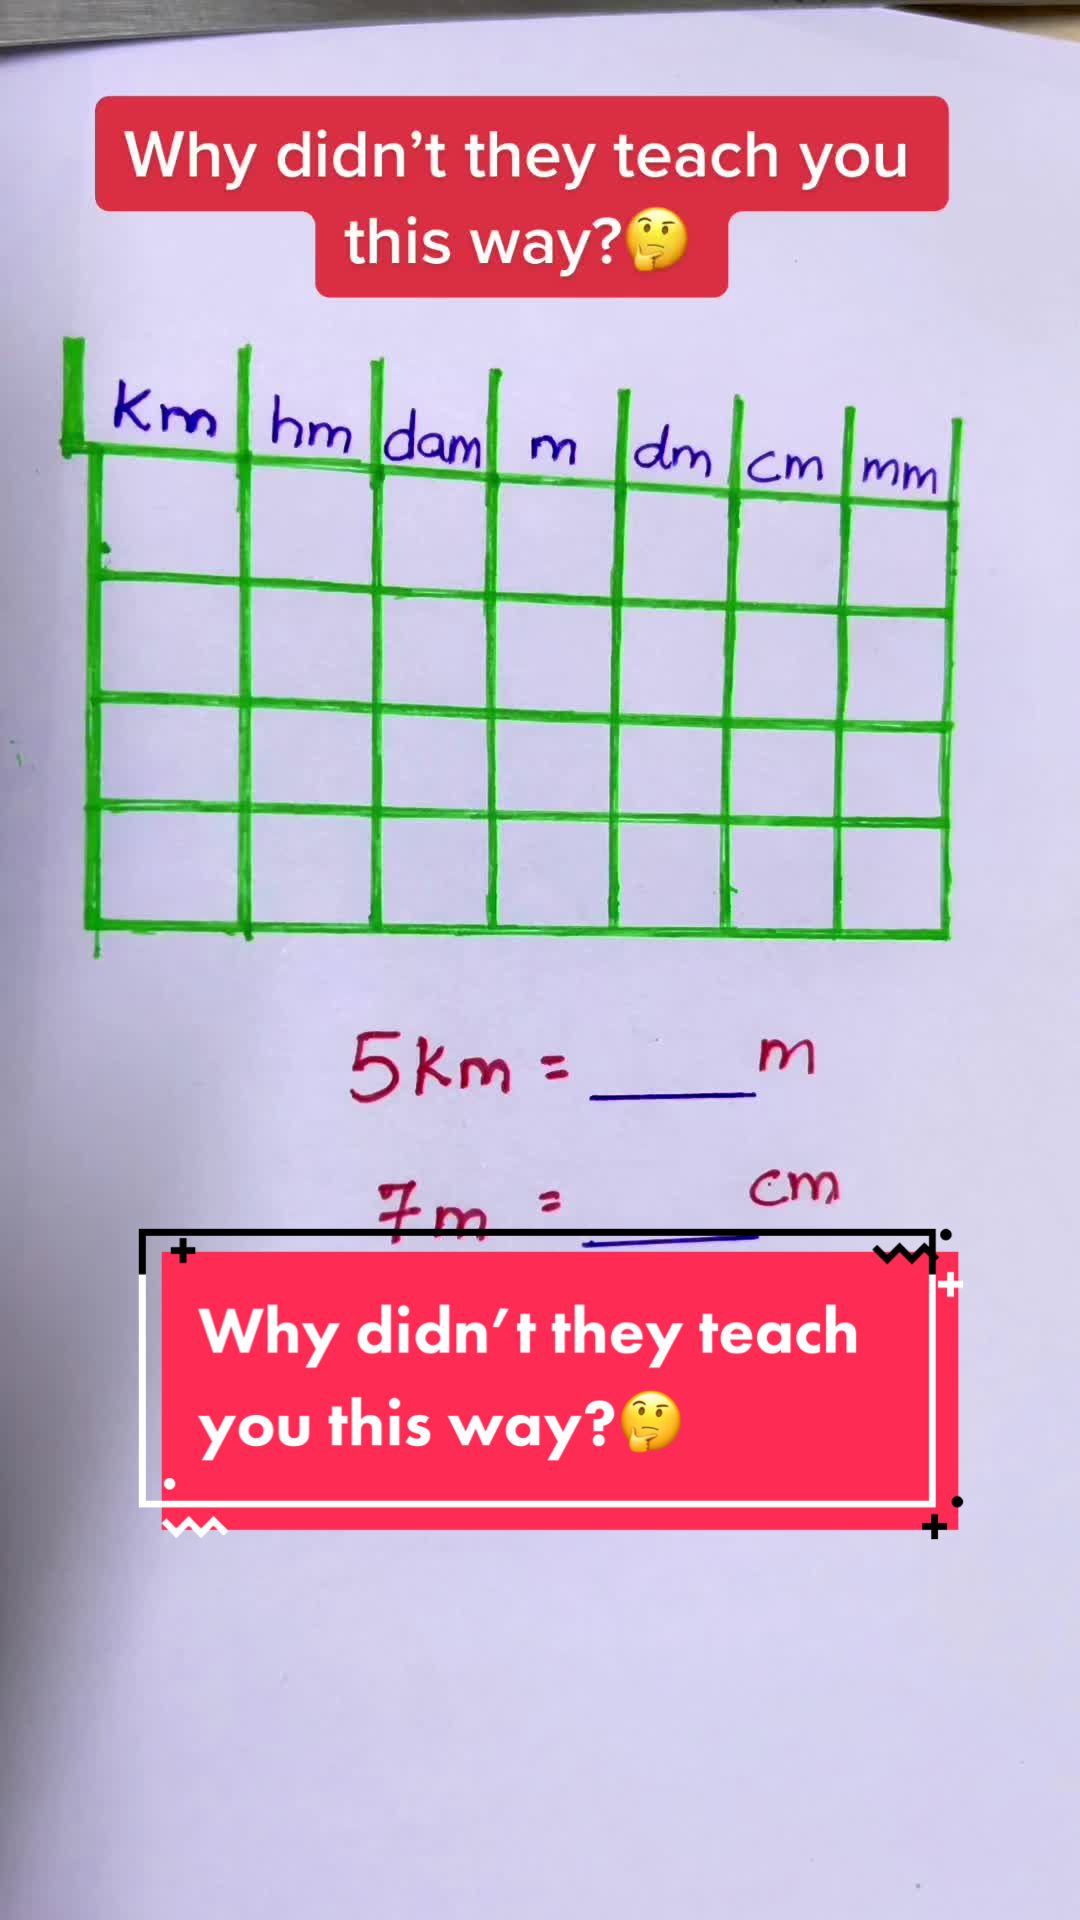 Why didn’t they teach you
this way?🤔
Km hm dam m dm cm mm
5km = ___ m
7m = ___ cm
Why didn’t they teach
you this way?🤔